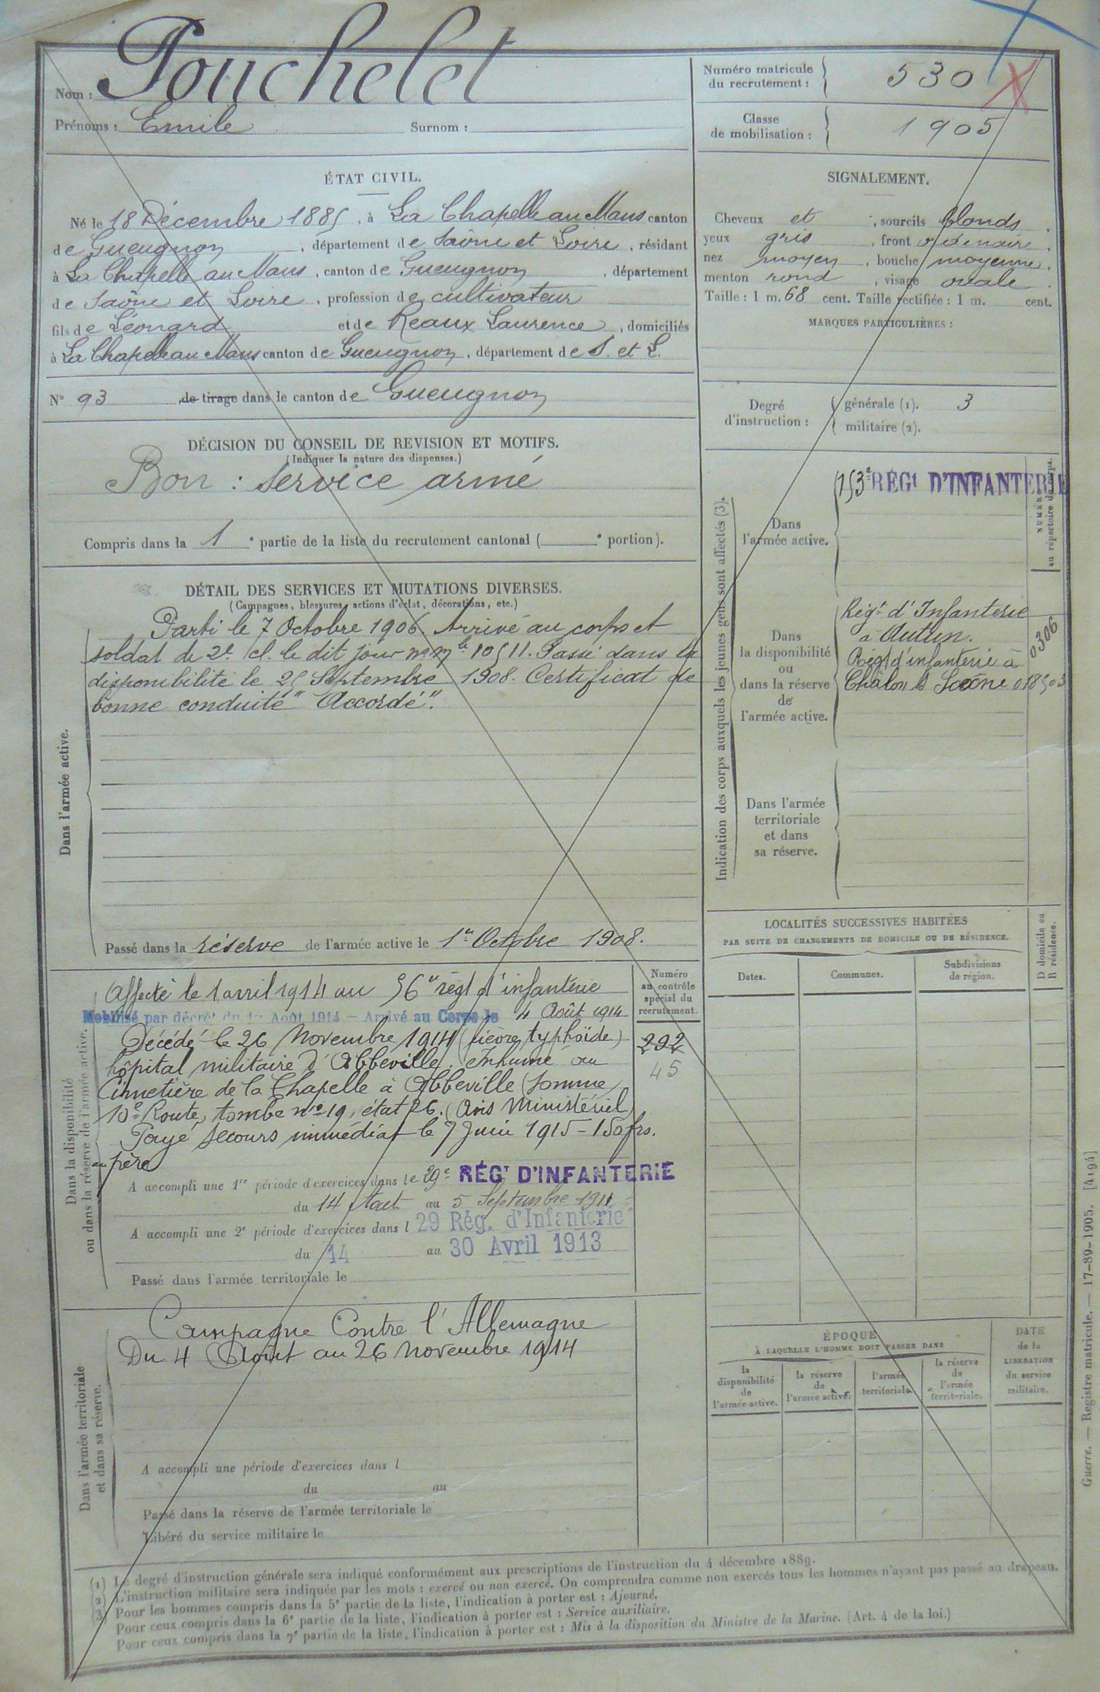 Nom : Pouchelet
Prénoms : Emile Surnom :
Numéro matricule du recrutement : 530
Classe de mobilisation : 1905
ÉTAT CIVIL.
Né le 18 Décembre 1885, à La Chapelle au Mans canton
de Gueugnon, département de Saône et Loire, résidant
à La Chapelle au Mans, canton de Gueugnon, département
de Saône et Loire, profession de cultivateur
fils de Léonard et de Reaux Laurence, domiciliés
à La Chapelle au Mans canton de Gueugnon, département de S. et L.
N° 93 de tirage dans le canton de Gueugnon
SIGNALEMENT.
Cheveux et , sourcils blonds.
yeux gris , front ordinaire.
nez moyen , bouche moyenne.
menton rond , visage ovale.
Taille : 1 m. 68 cent. Taille rectifiée : 1 m. cent.
MARQUES PARTICULIÈRES :
Degré d'instruction : générale (1). 3
militaire (2).
DÉCISION DU CONSEIL DE REVISION ET MOTIFS.
(Indiquer la nature des dispenses.)
Bon : service armé
Compris dans la 1e partie de la liste du recrutement cantonal ( e portion).
DÉTAIL DES SERVICES ET MUTATIONS DIVERSES.
(Campagnes, blessures, actions d'éclat, décorations, etc.)
Dans l'armée active.
Parti le 7 Octobre 1906. Arrivé au corps et
soldat de 2e cl. le dit jour no mle 10511. Passé dans la
disponibilité le 25 Septembre 1908. Certificat de
bonne conduite "Accordé".
Passé dans la réserve de l'armée active le 1er Octobre 1908.
Indication des corps auxquels les jeunes gens sont affectés (3).
NUMÉRO au répertoire du corps.
Dans l'armée active.
153e RÉGt D'INFANTERIE
Dans la disponibilité ou dans la réserve de l'armée active.
Régt d'Infanterie
à Autun. 0306
Régt d'infanterie à
Châlon s Saône 018503
Dans l'armée territoriale et dans sa réserve.
LOCALITÉS SUCCESSIVES HABITÉES
PAR SUITE DE CHANGEMENTS DE DOMICILE OU DE RÉSIDENCE.
Dates. Communes. Subdivisions de région. D domicile ou R résidence.
Dans la disponibilité ou dans la réserve de l'armée active.
Numéro au contrôle spécial du recrutement.
202
45
Affecté le 1 avril 1914 au 56e régt d'infanterie
Mobilisé par décret du 1er Août 1914 - Arrivé au Corps le 4 Août 1914
Décédé le 26 Novembre 1914 (fièvre typhoïde)
hôpital militaire d'Abbeville, enhumé au
Cimetière de la Chapelle à Abbeville (Somme
10e Route, tombe no 19, état 26. (Avis Ministériel)
Payé secours immédiat le 7 Juin 1915 - 150 frs.
au père
A accompli une 1re période d'exercices dans le 29e RÉGt D'INFANTERIE
du 14 Août au 5 Septembre 1911
A accompli une 2e période d'exercices dans l 29 Rég. d'Infanterie
du 14 au 30 Avril 1913
Passé dans l'armée territoriale le
Dans l'armée territoriale et dans sa réserve.
Campagne Contre l'Allemagne
Du 4 Août au 26 Novembre 1914
A accompli une période d'exercices dans l
du au
Passé dans la réserve de l'armée territoriale le
Libéré du service militaire le
ÉPOQUE
À LAQUELLE L'HOMME DOIT PASSER DANS
la disponibilité de l'armée active. la réserve de l'armée active. l'armée territoriale. la réserve de l'armée territoriale.
DATE de la LIBÉRATION du service militaire.
(1) Le degré d'instruction générale sera indiqué conformément aux prescriptions de l'instruction du 4 décembre 1889.
(2) L'instruction militaire sera indiquée par les mots : exercé ou non exercé. On comprendra comme non exercés tous les hommes n'ayant pas passé au drapeau.
(3) Pour les hommes compris dans la 5e partie de la liste, l'indication à porter est : Ajourné.
Pour ceux compris dans la 6e partie de la liste, l'indication à porter est : Service auxiliaire.
Pour ceux compris dans la 7e partie de la liste, l'indication à porter est : Mis à la disposition du Ministre de la Marine. (Art. 4 de la loi.)
Guerre. — Registre matricule. — 17-89-1905. [4194]